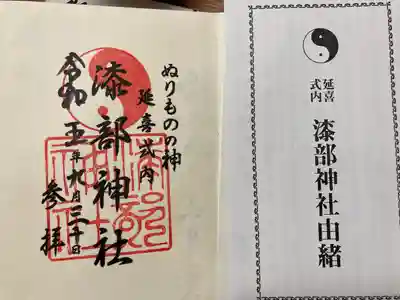 ぬりものの神
延喜式内
漆部神社
令和五年九月三十日
参拝
延喜
式内
漆部神社由緒